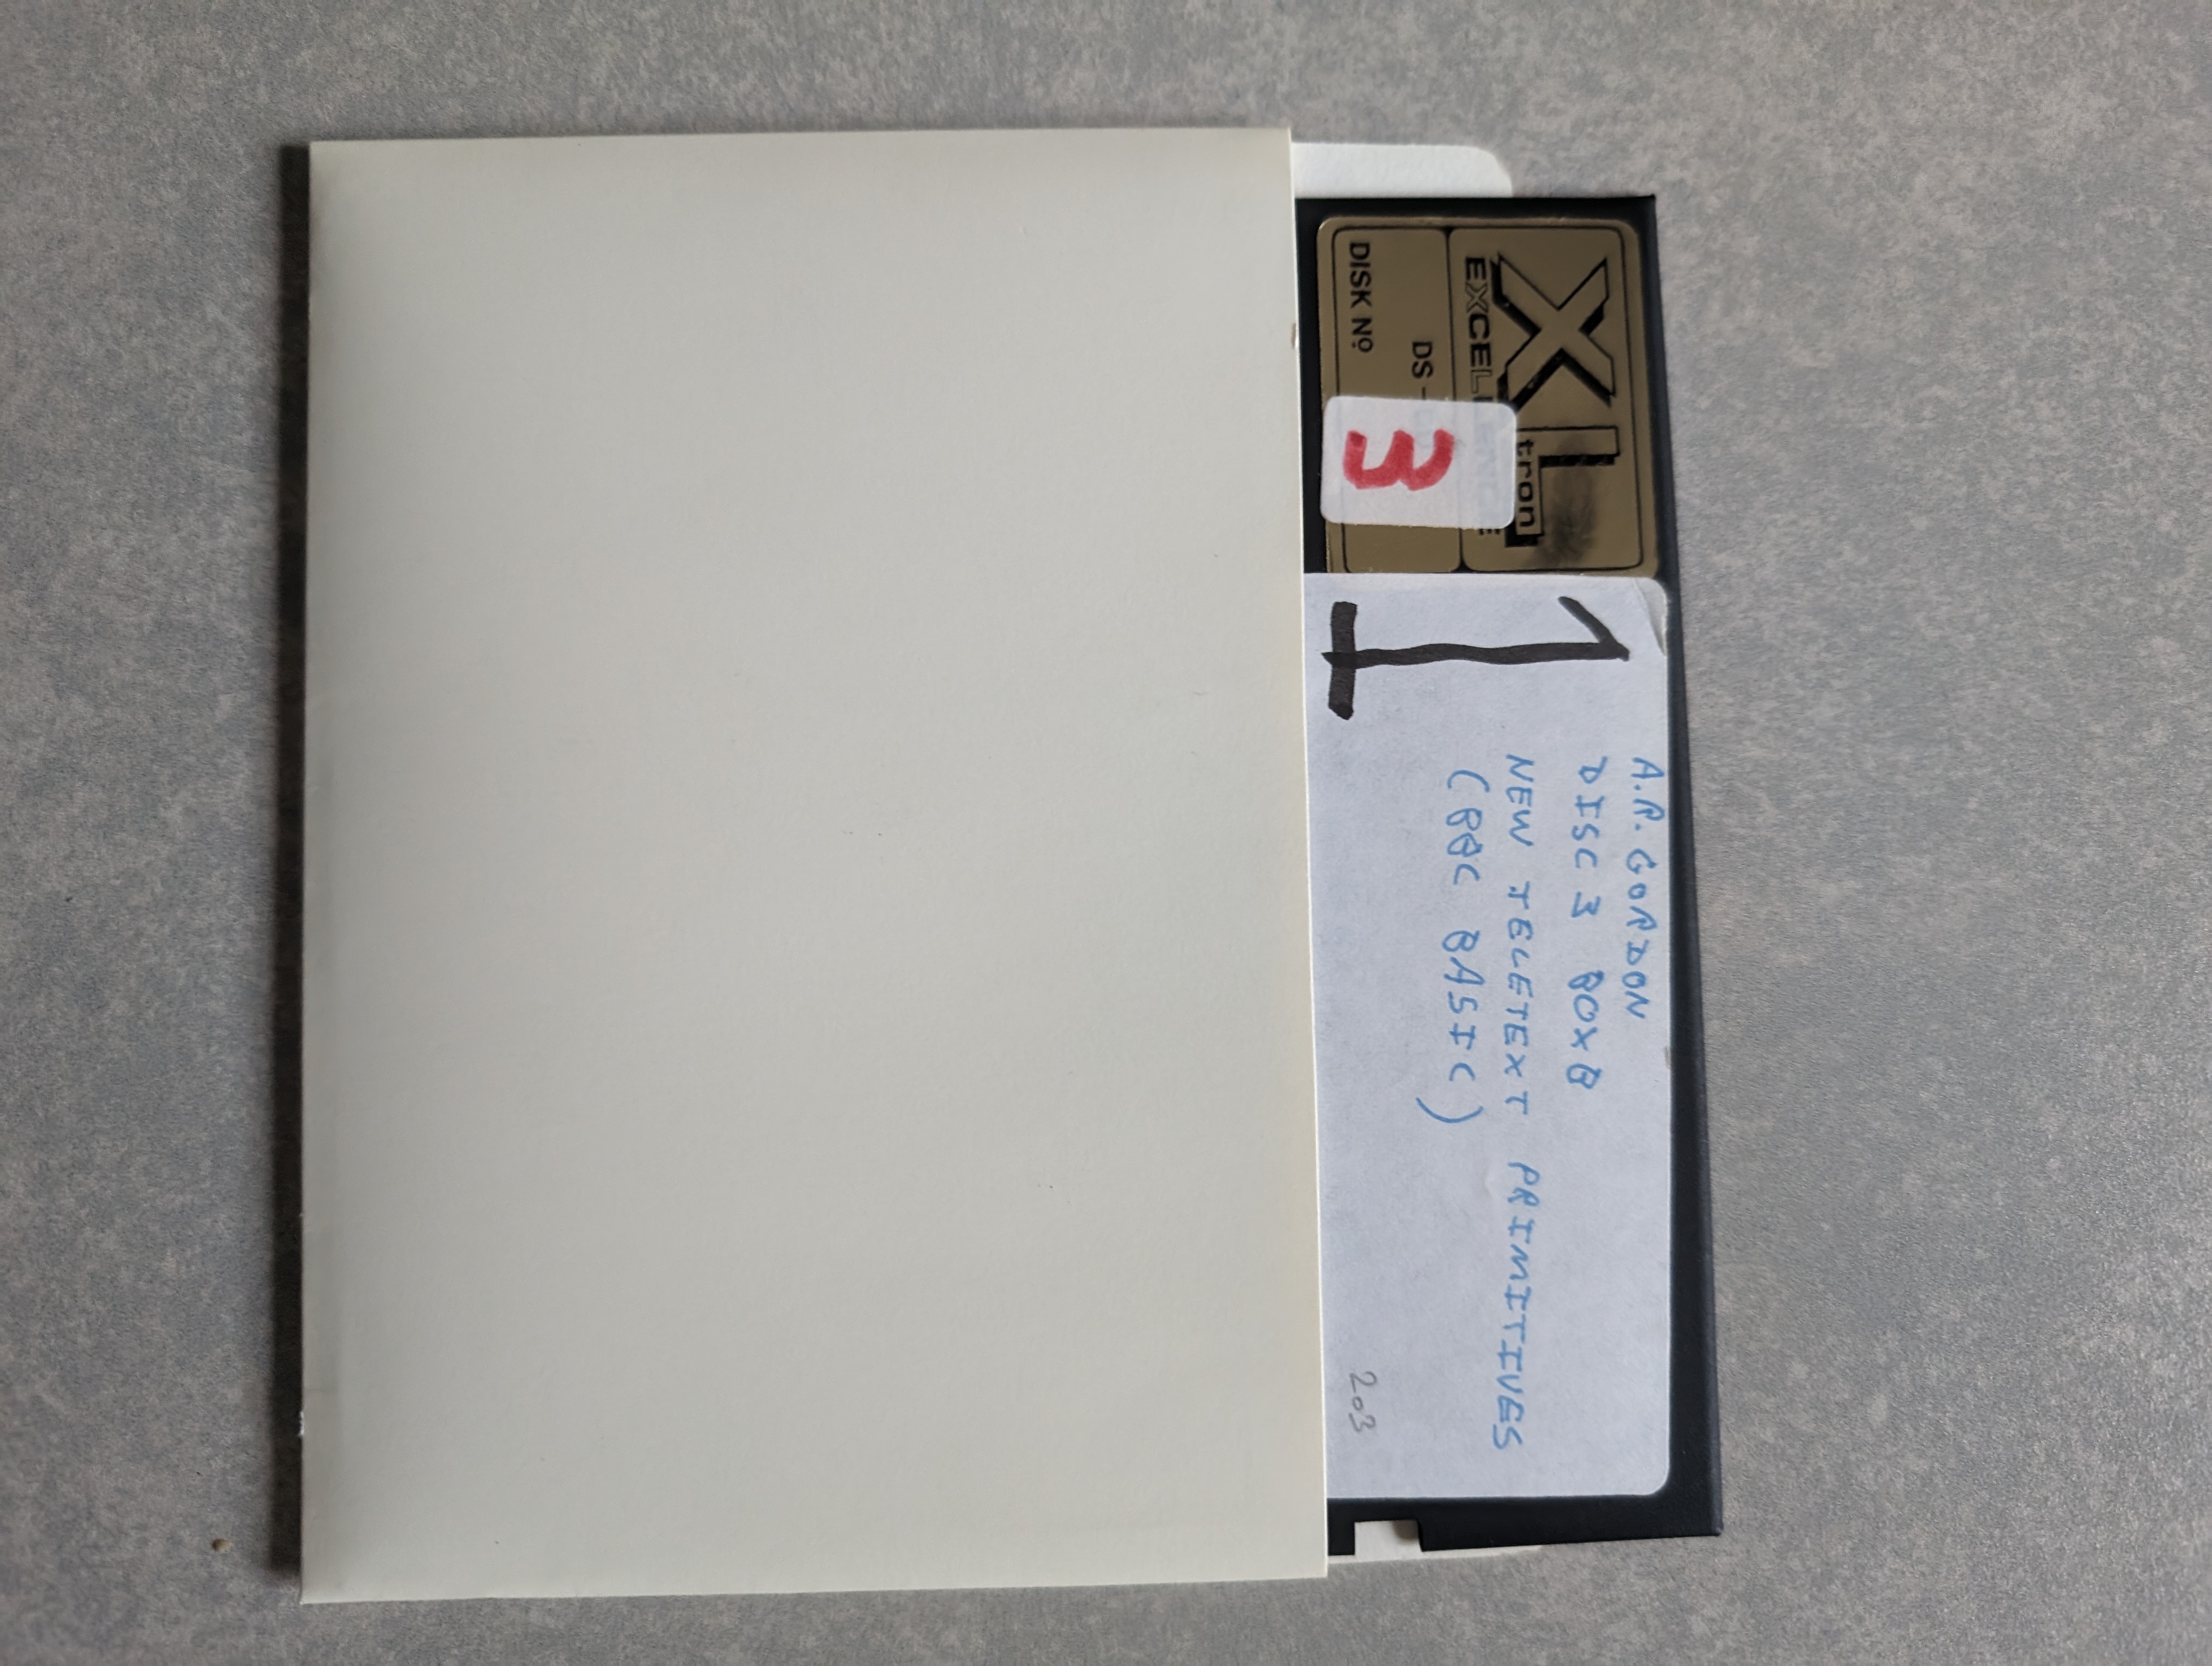 XL
tron
EXCELLENCE
DS -
DISK Nº
3
1
A.R. GORDON
DISC 3 BOX B
NEW TELETEXT PRIMITIVES
(BBC BASIC)
203